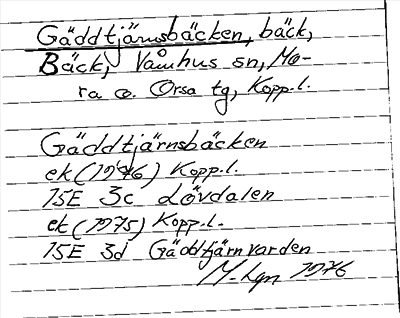 Gäddtjärnsbäcken, bäck,
Bäck, Våmhus sn, Mo-
ra o. Orsa tg, Kopp.l.
Gäddtjärnsbäcken
ek (1976) Kopp.l.
15E 3c Lövdalen
ek (1975) Kopp.l.
15E 3d Gäddtjärnvarden
M-Lgn 1976